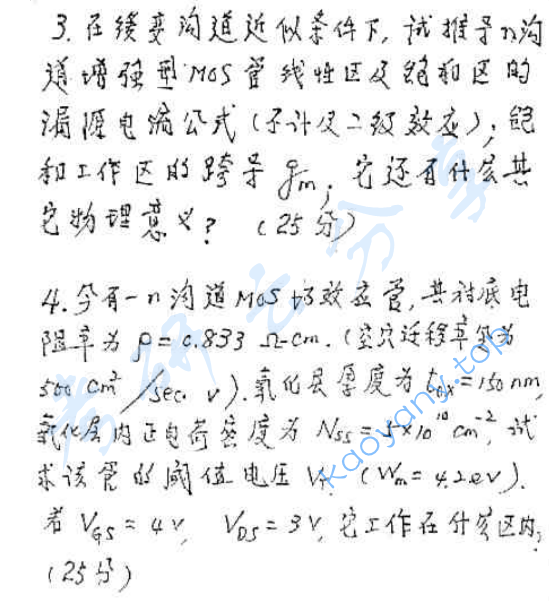 3. 在缓变沟道近似条件下, 试推导n沟
道增强型MOS管线性区及饱和区的
漏源电流公式(不计及二级效应); 饱
和工作区的跨导 gm; 它还有什么其
它物理意义? (25分)
4. 今有一n沟道MOS场效应管, 其衬底电
阻率为 ρ=0.833 Ω-cm. (空穴迁移率为
500 cm²/sec. v). 氧化层厚度为 tox=150 nm,
氧化层内正电荷密度为 Nss=5×10¹⁰ cm⁻², 试
求该管的阈值电压 VT. (Wm=4.2ev).
若 VGS=4V, VDS=3V, 它工作在什么区内?
(25分)
考研云分享
kaoyany.top